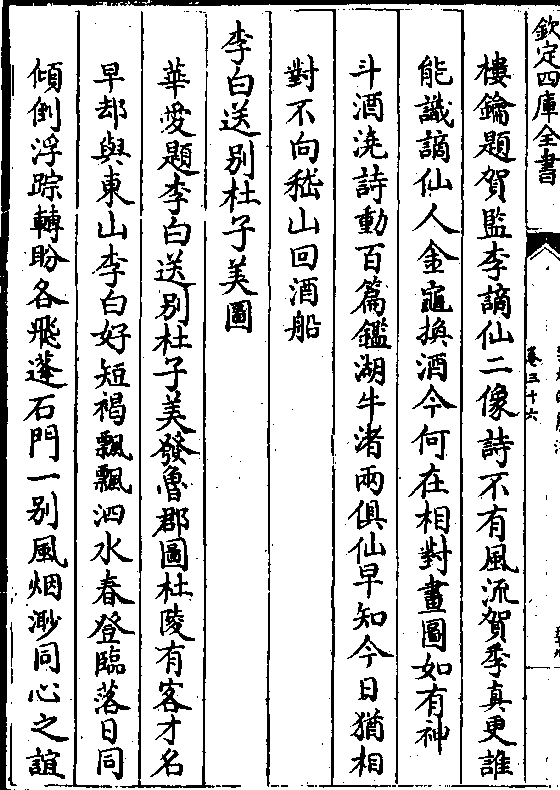 欽定四庫全書
卷三十六
樓鑰題賀監李謫仙二像詩不有風流賀季真更誰
能識謫仙人金龜換酒今何在相對畫圖如有神
斗酒澆詩動百篇鑑湖牛渚兩俱仙早知今日猶相
對不向嵇山回酒船
李白送别杜子美圖
華愛題李白送别杜子美發魯郡圖杜陵有客才名
早却與東山李白好短褐飄飄泗水春登臨落日同
傾倒浮踪轉盼各飛蓬石門一别風烟渺同心之誼